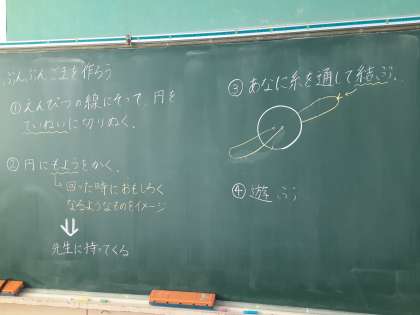 ぶんぶんごまを作ろう
①えんぴつの線にそって、円を
ていねいに切りぬく。
②円にもようをかく。
回った時におもしろく
なるようなものをイメージ
先生に持ってくる
③あなに糸を通して結ぶ。
④遊ぶ